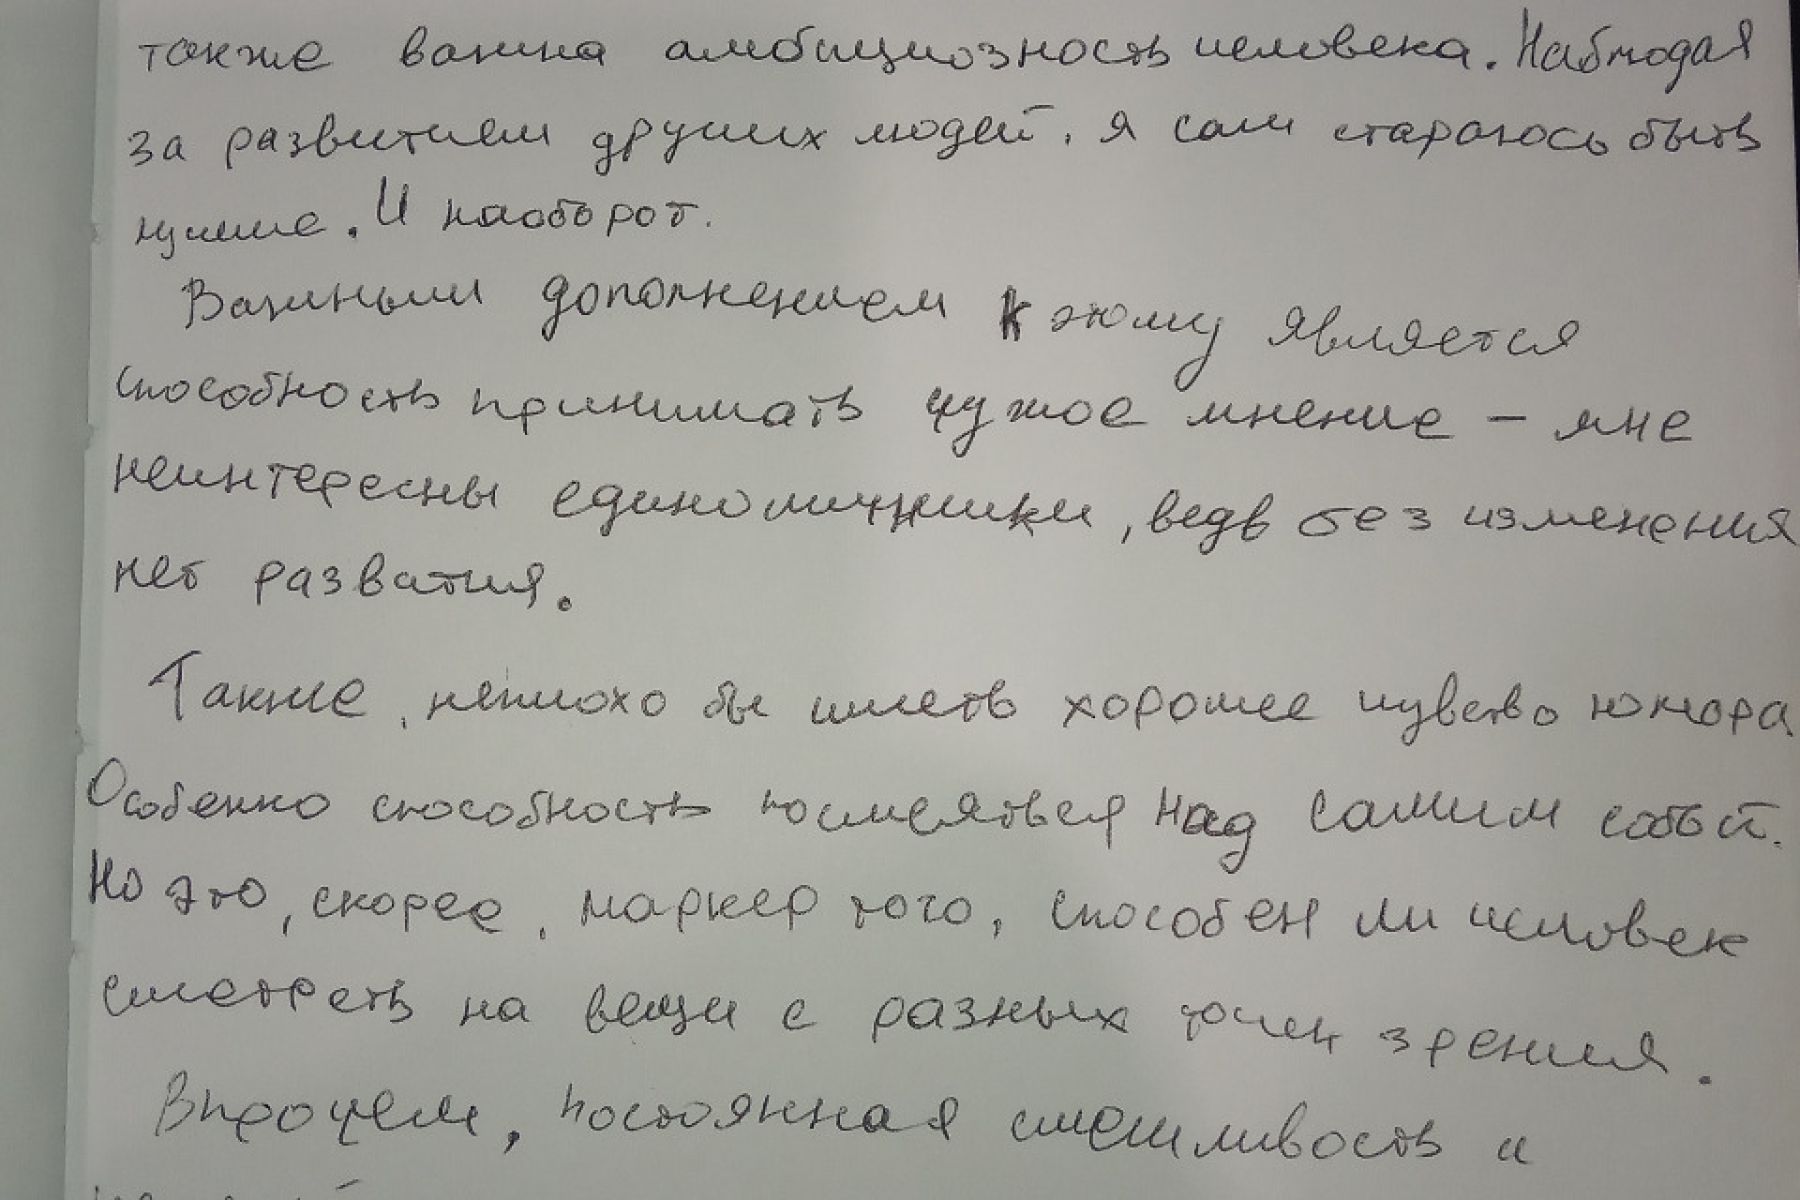 также важна амбициозность человека. Наблюдая
за развитием других людей, я сам стараюсь быть
лучше. И наоборот.
Важным дополнением к этому является
способность принимать чужое мнение – мне
неинтересны единоличники, ведь без изменения
нет развития.
Также, неплохо бы иметь хорошее чувство юмора
Особенно способность посмеяться над самим собой.
Но это, скорее, маркер того, способен ли человек
смотреть на вещи с разных точек зрения.
Впрочем, постоянная смешливость и